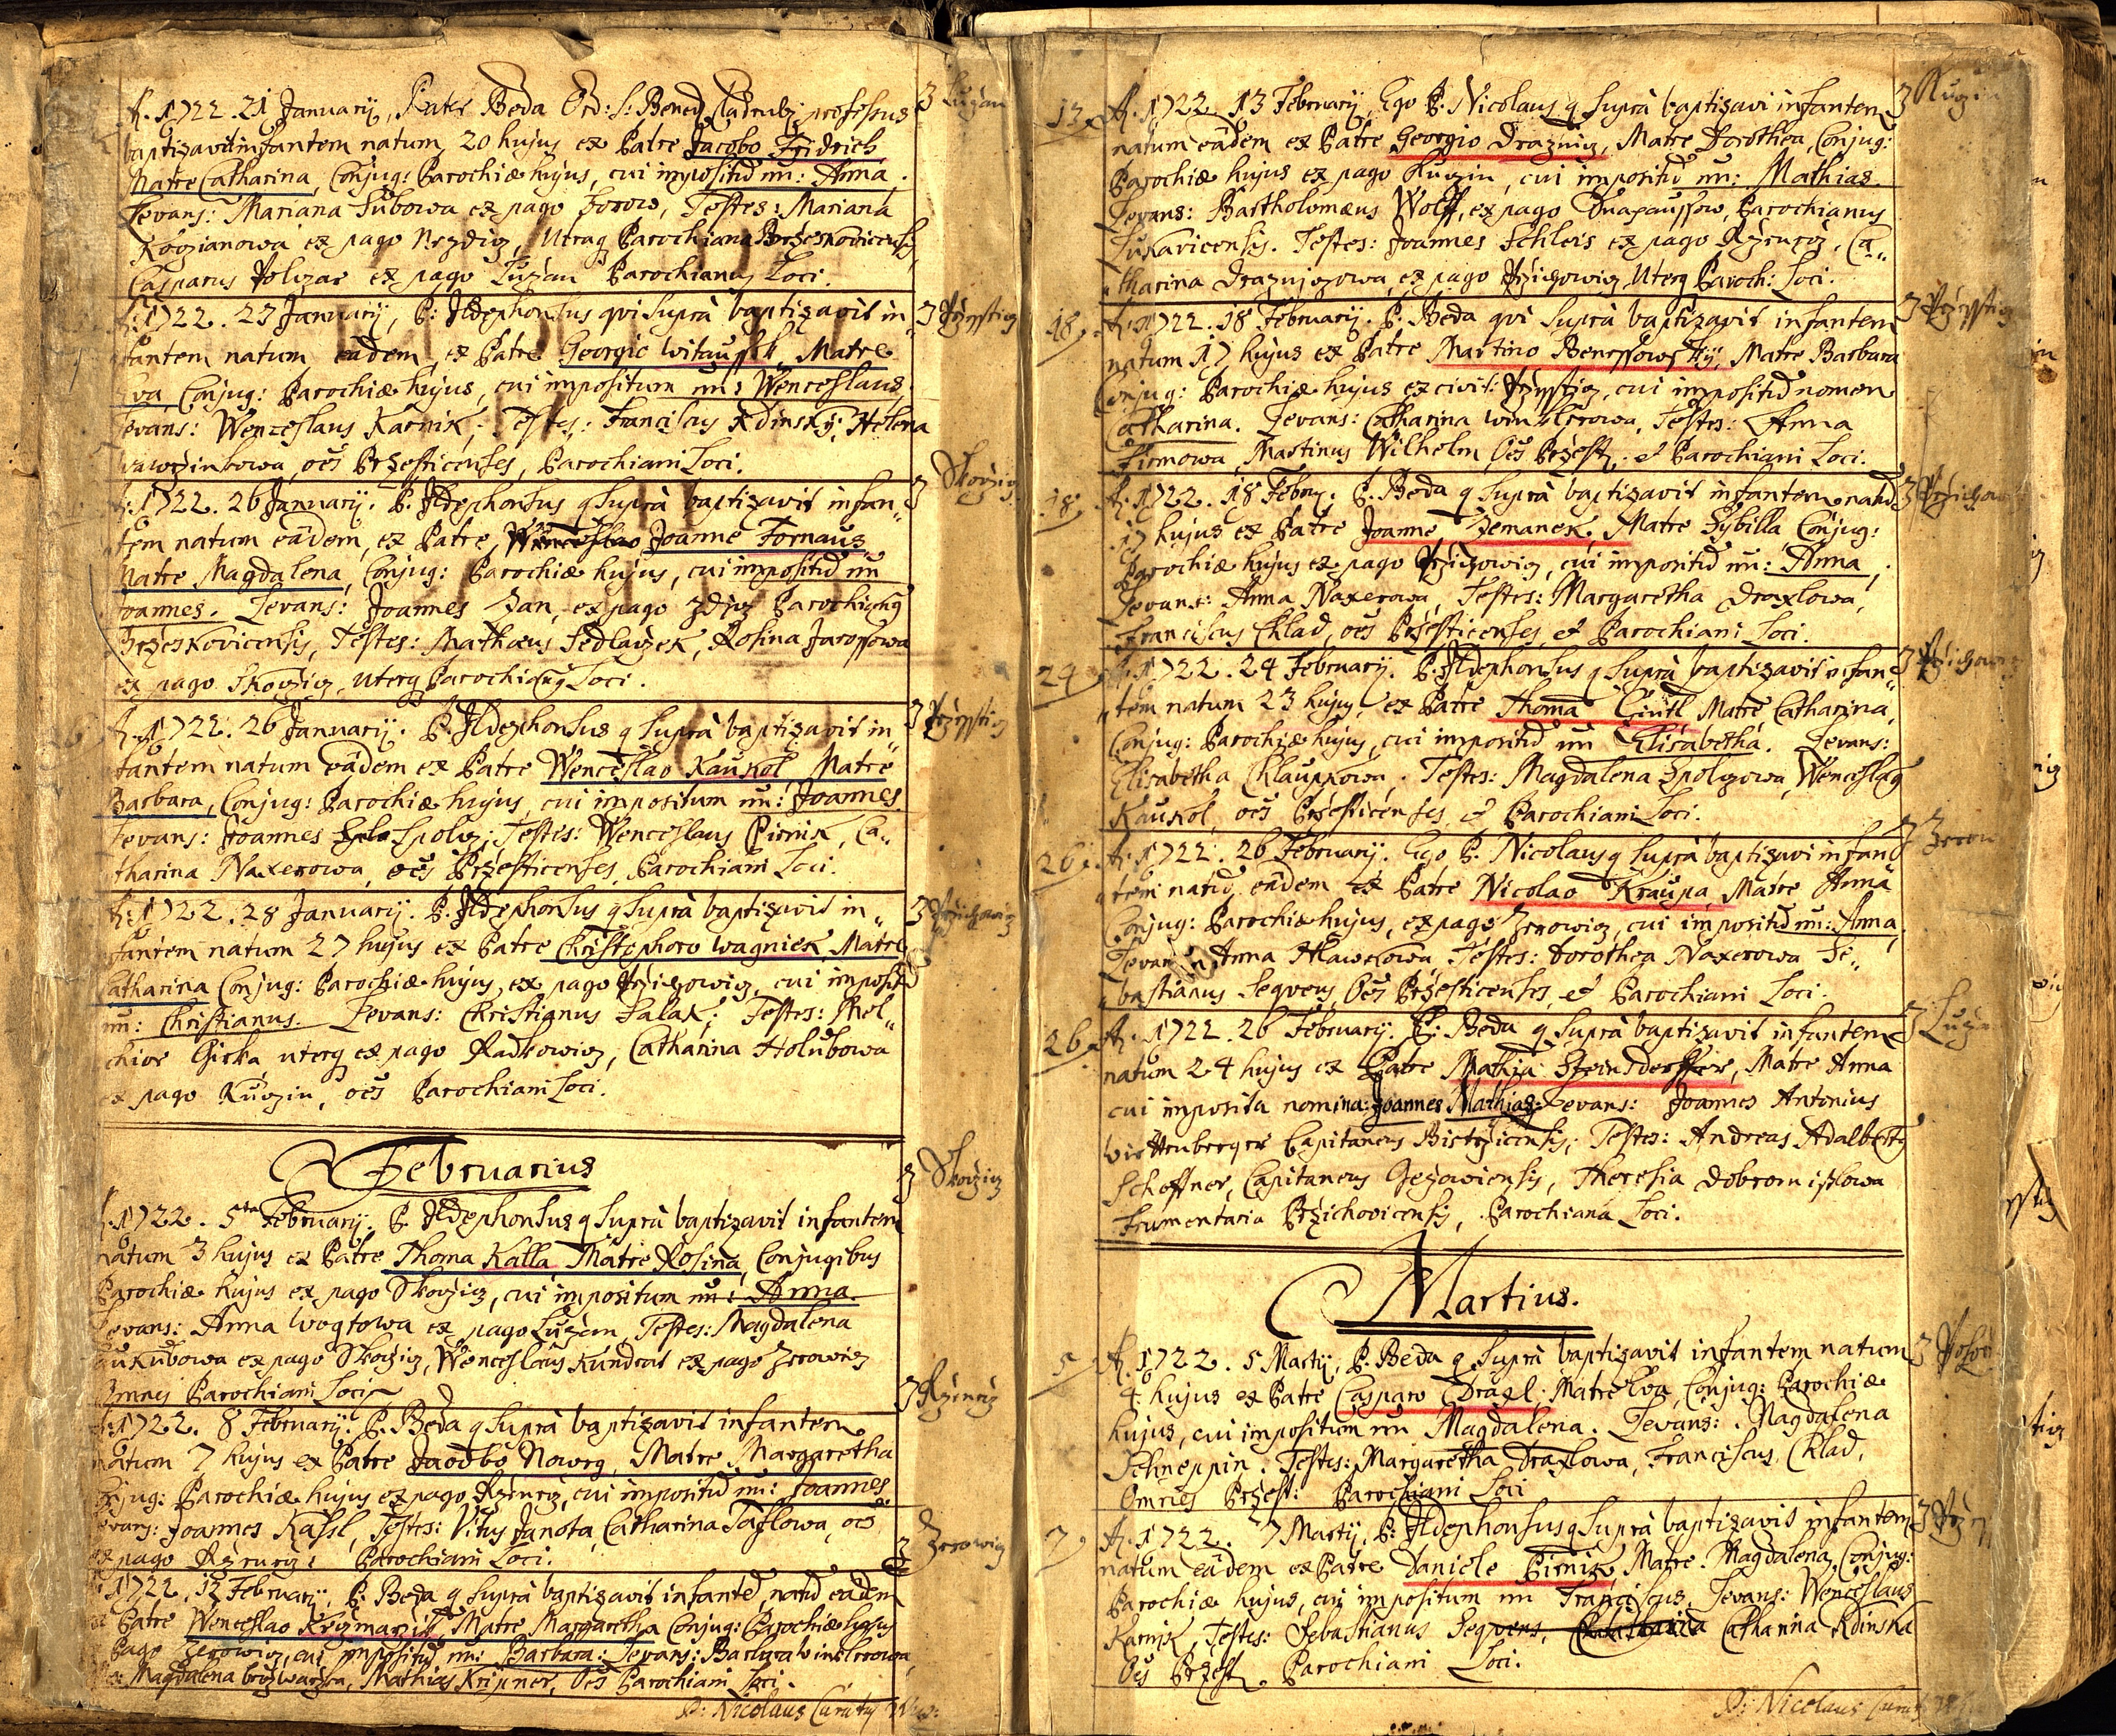 A. 1722. 21 Januarij, Pater Beda Ord: S: Bened. Cladrubij professus
baptizavit infantem natum 20 hujus ex Patre Jacobo Fridrich
Matre Catharina, Conjug: Parochiæ hujus, cui impositũ nn: Anna.
Levans: Mariana Lubowa ex pago Borow, Testes: Mariana
ex pago Nezdicz, Utraq Parochiana Brzeskovicensis,
Casparus ex pago Luzan Parochianus Loci.
3 Luzan
A. 1722. 23 Januarij, P: Ildephonsus qvi suprà baptizavit in„
fantem natum eâdem, ex Patre Georgio Witausseck Matre
Eva, Conjug: Parochiæ hujus, cui impositum nn: Wenceslaus,
Levans: Wenceslaus Karnik, Testes: Franciscus Kdinsky, Helena
Wawrzinkowa, oẽs Przesticenses, Parochiani Loci.
3 Przessticz
A. 1722. 26 Januarij. P. Ildephonsus q suprà baptizavit infan„
tem natum eâdem, ex Patre Wenceslao Joanne Fornaus
Matre Magdalena, Conjug: Parochiæ hujus, cui impositũ nn
Joannes. Levans: Joannes Zan, ex pago Zdicz Parochianus
Brzeskovicensis, Testes: Mathæus Sedlaczek, Rosina Jarossowa
ex pago Skoczicz, uterq Parochianus Loci.
3 Skoczicz
A. 1722. 26 Januarij. P. Ildephonsus q suprà baptizavit in„
fantem natum eâdem ex Patre Wenceslao Kaukol Matre
Barbara, Conjug: Parochiæ hujus, cui impositum nn: Joannes
Levans: Joannes Spolcz; Testes: Wenceslaus Pirnik, Ca„
tharina Naxerowa, oẽs Przesticenses, Parochiani Loci.
3 Przessticz
A. 1722. 28 Januarij. P. Ildephonsus q suprà baptizavit in„
fantem natum 27 hujus ex Patre Christophoro Wagniek, Matre
Catharina Conjug: Parochiæ hujus, ex pago Przichowicz, cui impositũ
nn: Christianus. Levans: Christianus Falax; Testes: Mel„
chior Girka, uterq ex pago Radkowicz, Catharina Holubowa
ex pago Kuczin, oẽs Parochiani Loci.
3 Przichowicz
Februarius
A. 1722. 5ta Februarij. P. Ildephonsus q suprà baptizavit infantem
natum 3 hujus ex Patre Thoma Kalla Matre Rosina, Conjugibus
Parochiæ hujus ex pago Skoczicz, cui impositum nn: Anna.
Levans: Anna Wogtowa ex pago Luzan, Testes: Magdalena
ex pago Skoczicz, Wenceslaus Kundrat ex pago Zerowicz
Omnes Parochiani Loci
3 Skoczicz
A. 1722. 8 Februarij. P. Beda q suprà baptizavit infantem
natum 7 hujus ex Patre Jacobo Nowrg, Matre Margaretha
Conjug: Parochiæ hujus ex pago Rzenicz, cui impositũ nn: Joannes
Levans: Joannes Kassl, Testes: Vitus Janota, Catharina Taflowa, oẽs
ex pago Rzenicz: Parochiani Loci.
3 Rzenicz
A. 1722. 12 Februarij. P. Beda q suprà baptizavit infantẽ, natũ eâdem
ex Patre Wenceslao Krizmarzik, Matre Margaretha Conjug: Parochiæ hujus
ex Pago Zerowicz, cui impositũ nn: Barbara: Levans: Barbara Winklerowa,
Testes: Magdalena Mathias Krijner, Oẽs Parochiani Loci.
3 Zerowicz
P: Nicolaus Curatus
13. A. 1722. 13 Februarij, Ego P. Nicolaus q suprà baptizavi infantem
natum eâdem ex Patre Georgio Draznicz, Matre Dorothea, Conjug:
Parochiæ hujus ex pago Kuczin, cui impositũ nn: Mathias.
Levans: Bartholomæus Wolff, ex pago Parochianus
Lukavicensis. Testes: Joannes Schleis ex pago Rzenicz, Ca„
tharina Draznizowa, ex pago Przichowicz, Uterq Paroch: Loci.
3 Kuczin
18. A. 1722. 18 Februarij. P. Beda qvi suprà baptizavit infantem
natum 17 hujus ex Patre Martino Benessowsky, Matre Barbara
Conjug: Parochiæ hujus ex civit: Przessticz, cui impositũ nomen
Catharina. Levans: Catharina Winklerowa, Testes: Anna
Firmowa, Martinus Wilhelm, Oẽs Przest: et Parochiani Loci.
3 Przessticz
18. A. 1722. 18 Febrũ. P. Beda q suprà baptizavit infantem natũ
17 hujus ex Patre Joanne Zemanek, Matre Sybilla, Conjug:
Parochiæ hujus ex pago Przichowicz, cui impositũ nn: Anna,
Levans: Anna Naxerowa, Testes: Margaretha Draxlowa,
Franciscus Chlad, oẽs Przesticenses, et Parochiani Loci.
3 Przichow
24 A. 1722. 24 Februarij. P. Ildephonsus q suprà baptizavit infan„
„tem natum 23 hujus, ex Patre Thoma Gintl Matre Catharina,
Conjug: Parochiæ hujus, cui impositũ nn Elisabetha. Levans:
Elisabetha Chlaupkowa. Testes: Magdalena Spolczowa, Wenceslaus
Kaukol, oẽs Przesticenses, et Parochiani Loci.
3 Przichowicz
26. A. 1722. 26 Februarij. Ego P. Nicolaus q suprà baptizavi infan„
„tem natũ eâdem ex Patre Nicolao Kraupa, Matre Anna
Conjug: Parochiæ hujus, ex pago Zerowicz, cui impositũ nn: Anna,
Levans Anna Hlawekowa, Testes: Dorothea Naxerowa Se„
„bastianus Seqvens, Oẽs Przesticenses, et Parochiani Loci.
3 Zerow
26 A. 1722. 26 Februarij. P: Beda q suprà baptizavit infantem
natum 24 hujus ex Patre Mathia Steinsdorffer, Matre Anna
cui imposita nomina: Joannes Mathias. Levans: Joannes Antonius
Wirttenberger Capitaneus Bistrzicensis; Testes: Andreas Adalbertus
Scheffner, Capitaneus Gezowiensis, Theresia Dobromislowa
Frumentaria Przichovicensis, Parochiana Loci.
3 Luza
Martius.
5 A. 1722. 5 Martij, P. Beda q suprà baptizavit infantem natum
4. hujus ex Patre Casparo Dräxl, Matre Eva, Conjug: Parochiæ
hujus, cui impositum nn Magdalena. Levans: Magdalena
Schneppin. Testes: Margaretha Draxlowa, Franciscus Chlad,
Omnes Przest: Parochiani Loci
7 A. 1722. 7 Martij, P: Ildephonsus q suprà baptizavit infantem
natum eâdem ex Patre Daniele Pirnik, Matre Magdalena, Conjug:
Parochiæ hujus, cui impositum nn Franciscus, Levans: Wenceslaus
Karnik, Testes: Sebastianus Seqvens, Catharina Kdinska
Oẽs Przest. Parochiani Loci.
P: Nicolaus Curatus